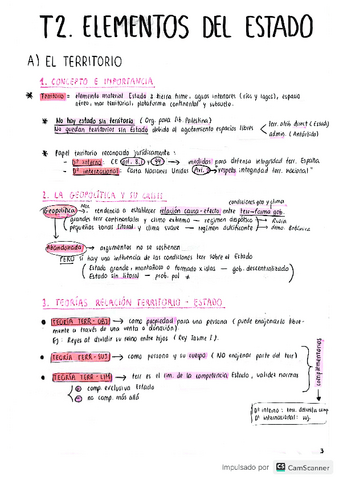 T2. ELEMENTOS DEL ESTADO
A) EL TERRITORIO
1. CONCEPTO E IMPORTANCIA
* Territorio = elemento material Estado = tierra firme, aguas interiores (ríos y lagos), espacio
aéreo, mar territorial, plataforma continental y subsuelo.
* No hay estado sin territorio (Org. para lib. Palestina)
No quedan territorios sin Estado debido al agotamiento espacios libres
adms. (Antártida)
* Papel territorio reconocido jurídicamente:
- Dº interno: CE Art. 8.1 y 94 medidas para defensa integridad terr. España.
- Dº internacional: Carta Naciones Unidas Art. 2 respeto integridad terr. nacional"
2. LA GEOPOLÍTICA Y SU CRISIS
condiciones geo y clima
Geopolítica → tendencia a establecer relación causa-efecto entre terr-forma gob.
grandes terr continentales y clima extremo → régimen despótico → Rusia
pequeñas zonas litoral y clima suave → régimen autosuficiente →
Abandonada → argumentos no se sostienen
PERO sí hay una influencia de las condiciones terr sobre el Estado
Estado grande, montañoso o formado x islas → gob. descentralizado
Estado sin litoral → prob. pol
3. TEORÍAS RELACIÓN TERRITORIO - ESTADO
• TEORÍA TERR-OBJ → como propiedad para una persona (puede enajenarlo libre-
mente a través de una venta o donación).
Ej: Reyes al dividir su reino entre hijos (Rey Jaume I).
• TEORÍA TERR-SUJ → como persona y su cuerpo (NO enajenar parte del terr)
• TEORÍA TERR-LIM → terr es el lím. de la competencia Estado, validez normas
⊕ comp. exclusiva Estado
⊖ no comp. más allá
complementarios
Dº interno: terr. delimita comp
Dº internacional: suj.
3
Impulsado por CS CamScanner